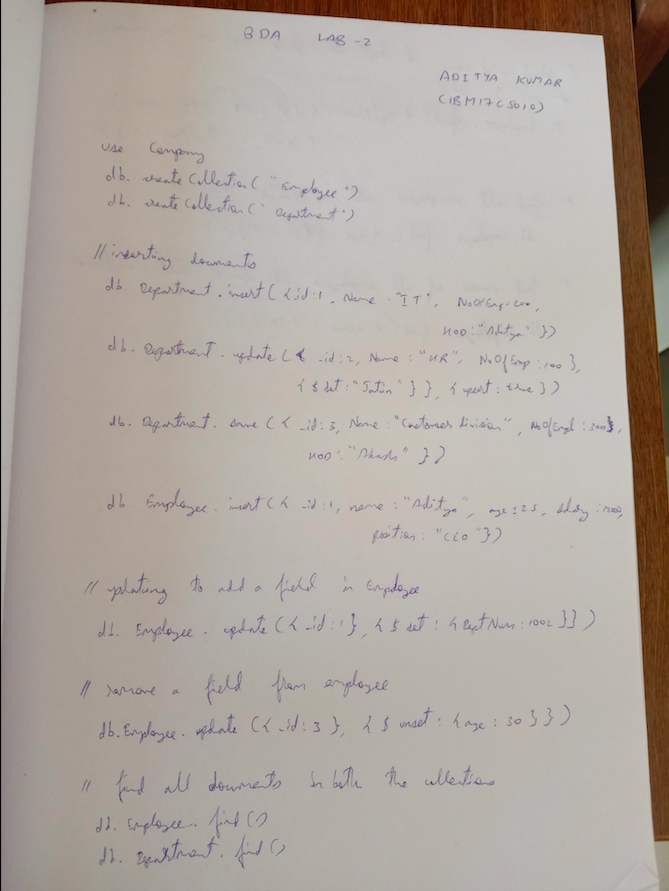 BDA LAB -2
ADITYA KUMAR
(1BM17CS010)
use Company
db. createCollection( "Employee")
db. createCollection( "Department")
// inserting documents
db. Department . insert ( { _id:1, Name : "IT", NoOfEmp:200,
HOD : "Aditya" })
db. Department . update ( { _id:2, Name : "HR", NoOfEmp :100 },
{ $ set : "Jatin" } }, { upsert : true })
db. Department . save ( { _id:3, Name : "Customer division", NoOfEmpl : 300},
HOD : "Akash" })
db. Employee. insert ( { _id:1, name : "Aditya", age : 25, Salary :
position : "CEO" })
// updating to add a field in Employee
db. Employee . update ( { _id : 1 }, { $ set : { DeptNum : 1002 } } )
// remove a field from employee
db. Employee . update ( { _id : 3 }, { $ unset : { age : 30 } } )
// find all documents in both the collections
db. Employee. find ()
db. Department. find ()